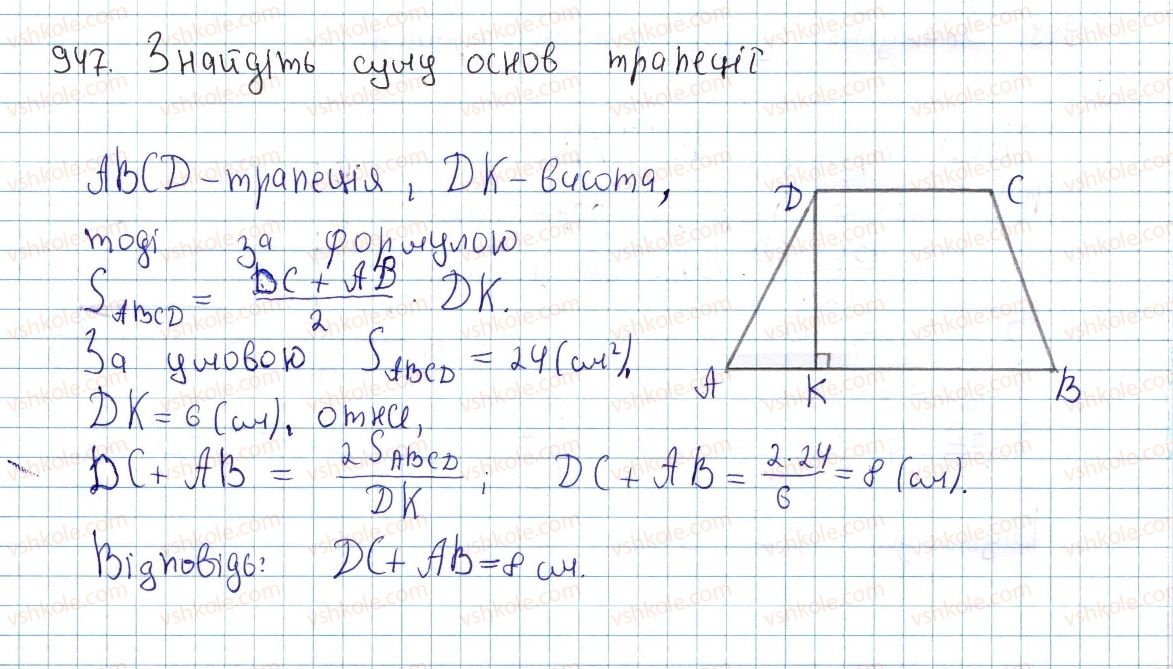 947. Знайдіть суму основ трапеції
ABCD – трапеція, DK – висота,
тоді за формулою
S_ABCD = (DC + AB)/2 · DK.
За умовою S_ABCD = 24 (см²),
DK = 6 (см), отже,
DC + AB = 2S_ABCD/DK; DC + AB = 2·24/6 = 8 (см).
Відповідь: DC + AB = 8 см.
D C
A K B
vshkole.com